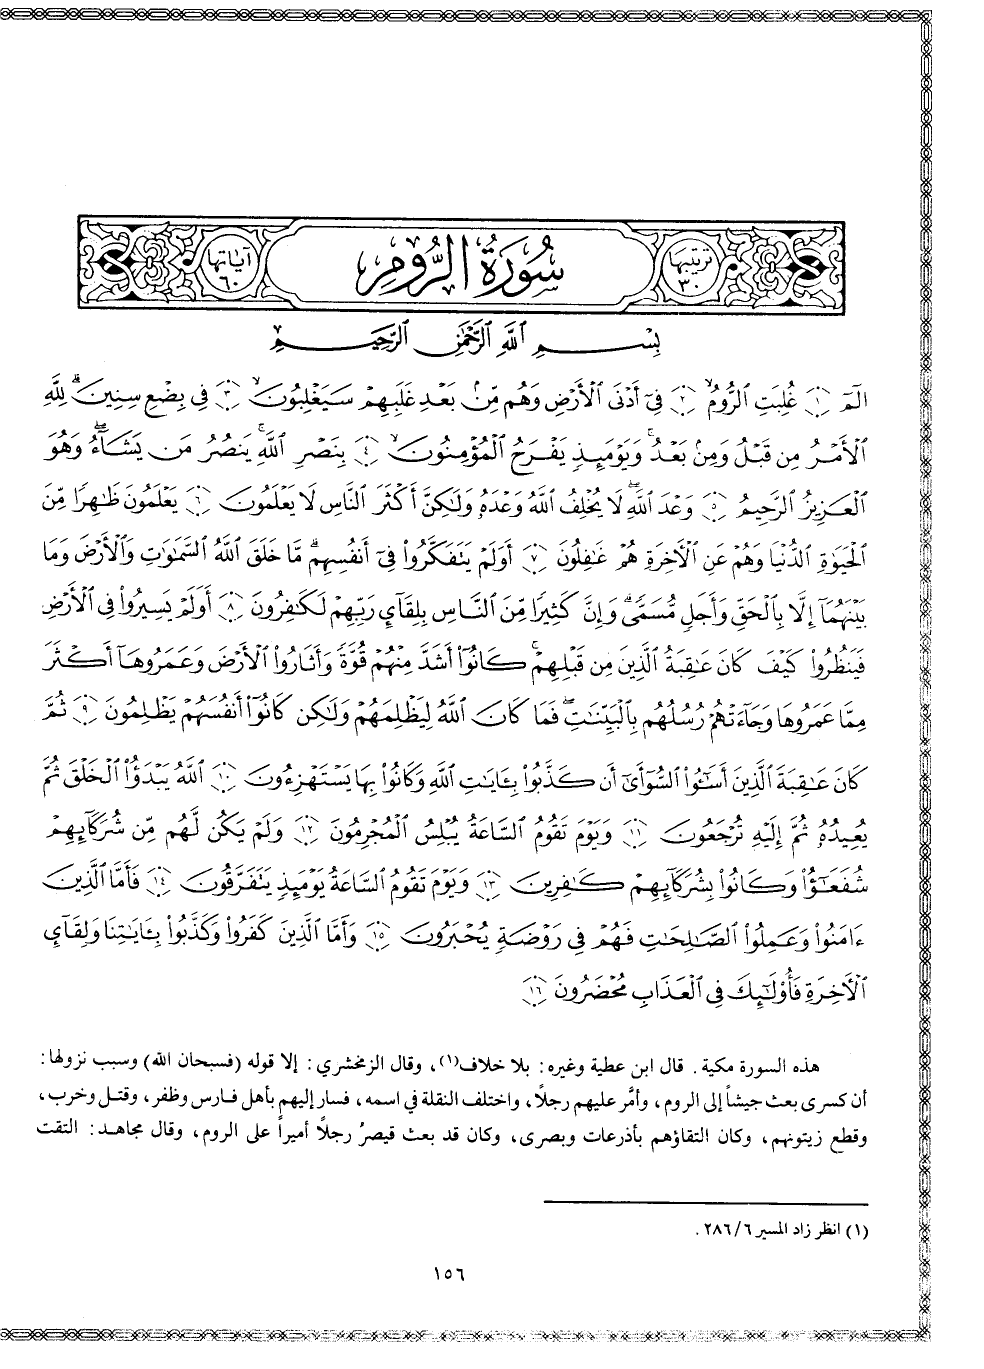 ترتيبها ٣٠
سُورَةُ الرُّومِ
آياتها ٦٠
بِسْمِ اللَّهِ الرَّحْمَٰنِ الرَّحِيمِ
الٓمٓ ١ غُلِبَتِ الرُّومُ ۙ ٢ فِىٓ أَدْنَى الْأَرْضِ وَهُم مِّنۢ بَعْدِ غَلَبِهِمْ سَيَغْلِبُونَ ۙ ٣ فِى بِضْعِ سِنِينَ ۗ لِلَّهِ
الْأَمْرُ مِن قَبْلُ وَمِنۢ بَعْدُ ۚ وَيَوْمَئِذٍ يَفْرَحُ الْمُؤْمِنُونَ ۙ ٤ بِنَصْرِ اللَّهِ ۚ يَنصُرُ مَن يَشَآءُ ۖ وَهُوَ
الْعَزِيزُ الرَّحِيمُ ٥ وَعْدَ اللَّهِ ۖ لَا يُخْلِفُ اللَّهُ وَعْدَهُۥ وَلَٰكِنَّ أَكْثَرَ النَّاسِ لَا يَعْلَمُونَ ٦ يَعْلَمُونَ ظَٰهِرًا مِّنَ
الْحَيَوٰةِ الدُّنْيَا وَهُمْ عَنِ الْأَخِرَةِ هُمْ غَٰفِلُونَ ٧ أَوَلَمْ يَتَفَكَّرُوا۟ فِىٓ أَنفُسِهِم ۗ مَّا خَلَقَ اللَّهُ السَّمَٰوَٰتِ وَالْأَرْضَ وَمَا
بَيْنَهُمَآ إِلَّا بِالْحَقِّ وَأَجَلٍ مُّسَمًّى ۗ وَإِنَّ كَثِيرًا مِّنَ النَّاسِ بِلِقَآئِ رَبِّهِمْ لَكَٰفِرُونَ ٨ أَوَلَمْ يَسِيرُوا۟ فِى الْأَرْضِ
فَيَنظُرُوا۟ كَيْفَ كَانَ عَٰقِبَةُ الَّذِينَ مِن قَبْلِهِمْ ۚ كَانُوٓا۟ أَشَدَّ مِنْهُمْ قُوَّةً وَأَثَارُوا۟ الْأَرْضَ وَعَمَرُوهَآ أَكْثَرَ
مِمَّا عَمَرُوهَا وَجَآءَتْهُمْ رُسُلُهُم بِالْبَيِّنَٰتِ ۖ فَمَا كَانَ اللَّهُ لِيَظْلِمَهُمْ وَلَٰكِن كَانُوٓا۟ أَنفُسَهُمْ يَظْلِمُونَ ٩ ثُمَّ
كَانَ عَٰقِبَةَ الَّذِينَ أَسَٰٓـُٔوا۟ السُّوٓأَىٰٓ أَن كَذَّبُوا۟ بِـَٔايَٰتِ اللَّهِ وَكَانُوا۟ بِهَا يَسْتَهْزِءُونَ ١٠ اللَّهُ يَبْدَؤُا۟ الْخَلْقَ ثُمَّ
يُعِيدُهُۥ ثُمَّ إِلَيْهِ تُرْجَعُونَ ١١ وَيَوْمَ تَقُومُ السَّاعَةُ يُبْلِسُ الْمُجْرِمُونَ ١٢ وَلَمْ يَكُن لَّهُم مِّن شُرَكَآئِهِمْ
شُفَعَٰٓؤُا۟ وَكَانُوا۟ بِشُرَكَآئِهِمْ كَٰفِرِينَ ١٣ وَيَوْمَ تَقُومُ السَّاعَةُ يَوْمَئِذٍ يَتَفَرَّقُونَ ١٤ فَأَمَّا الَّذِينَ
ءَامَنُوا۟ وَعَمِلُوا۟ الصَّٰلِحَٰتِ فَهُمْ فِى رَوْضَةٍ يُحْبَرُونَ ١٥ وَأَمَّا الَّذِينَ كَفَرُوا۟ وَكَذَّبُوا۟ بِـَٔايَٰتِنَا وَلِقَآئِ
الْأَخِرَةِ فَأُو۟لَٰٓئِكَ فِى الْعَذَابِ مُحْضَرُونَ ١٦
هذه السورة مكية. قال ابن عطية وغيره: بلا خلاف(١)، وقال الزمخشري: إلا قوله (فسبحان الله) وسبب نزولها:
أن كسرى بعث جيشاً إلى الروم، وأمَّر عليهم رجلًا، واختلف النقلة في اسمه، فسار إليهم بأهل فارس وظفر، وقتل وخرب،
وقطع زيتونهم، وكان التقاؤهم بأذرعات وبصرى، وكان قد بعث قيصرُ رجلًا أميراً على الروم، وقال مجاهد: التقت
(١) انظر زاد المسير ٦/٢٨٦.
١٥٦